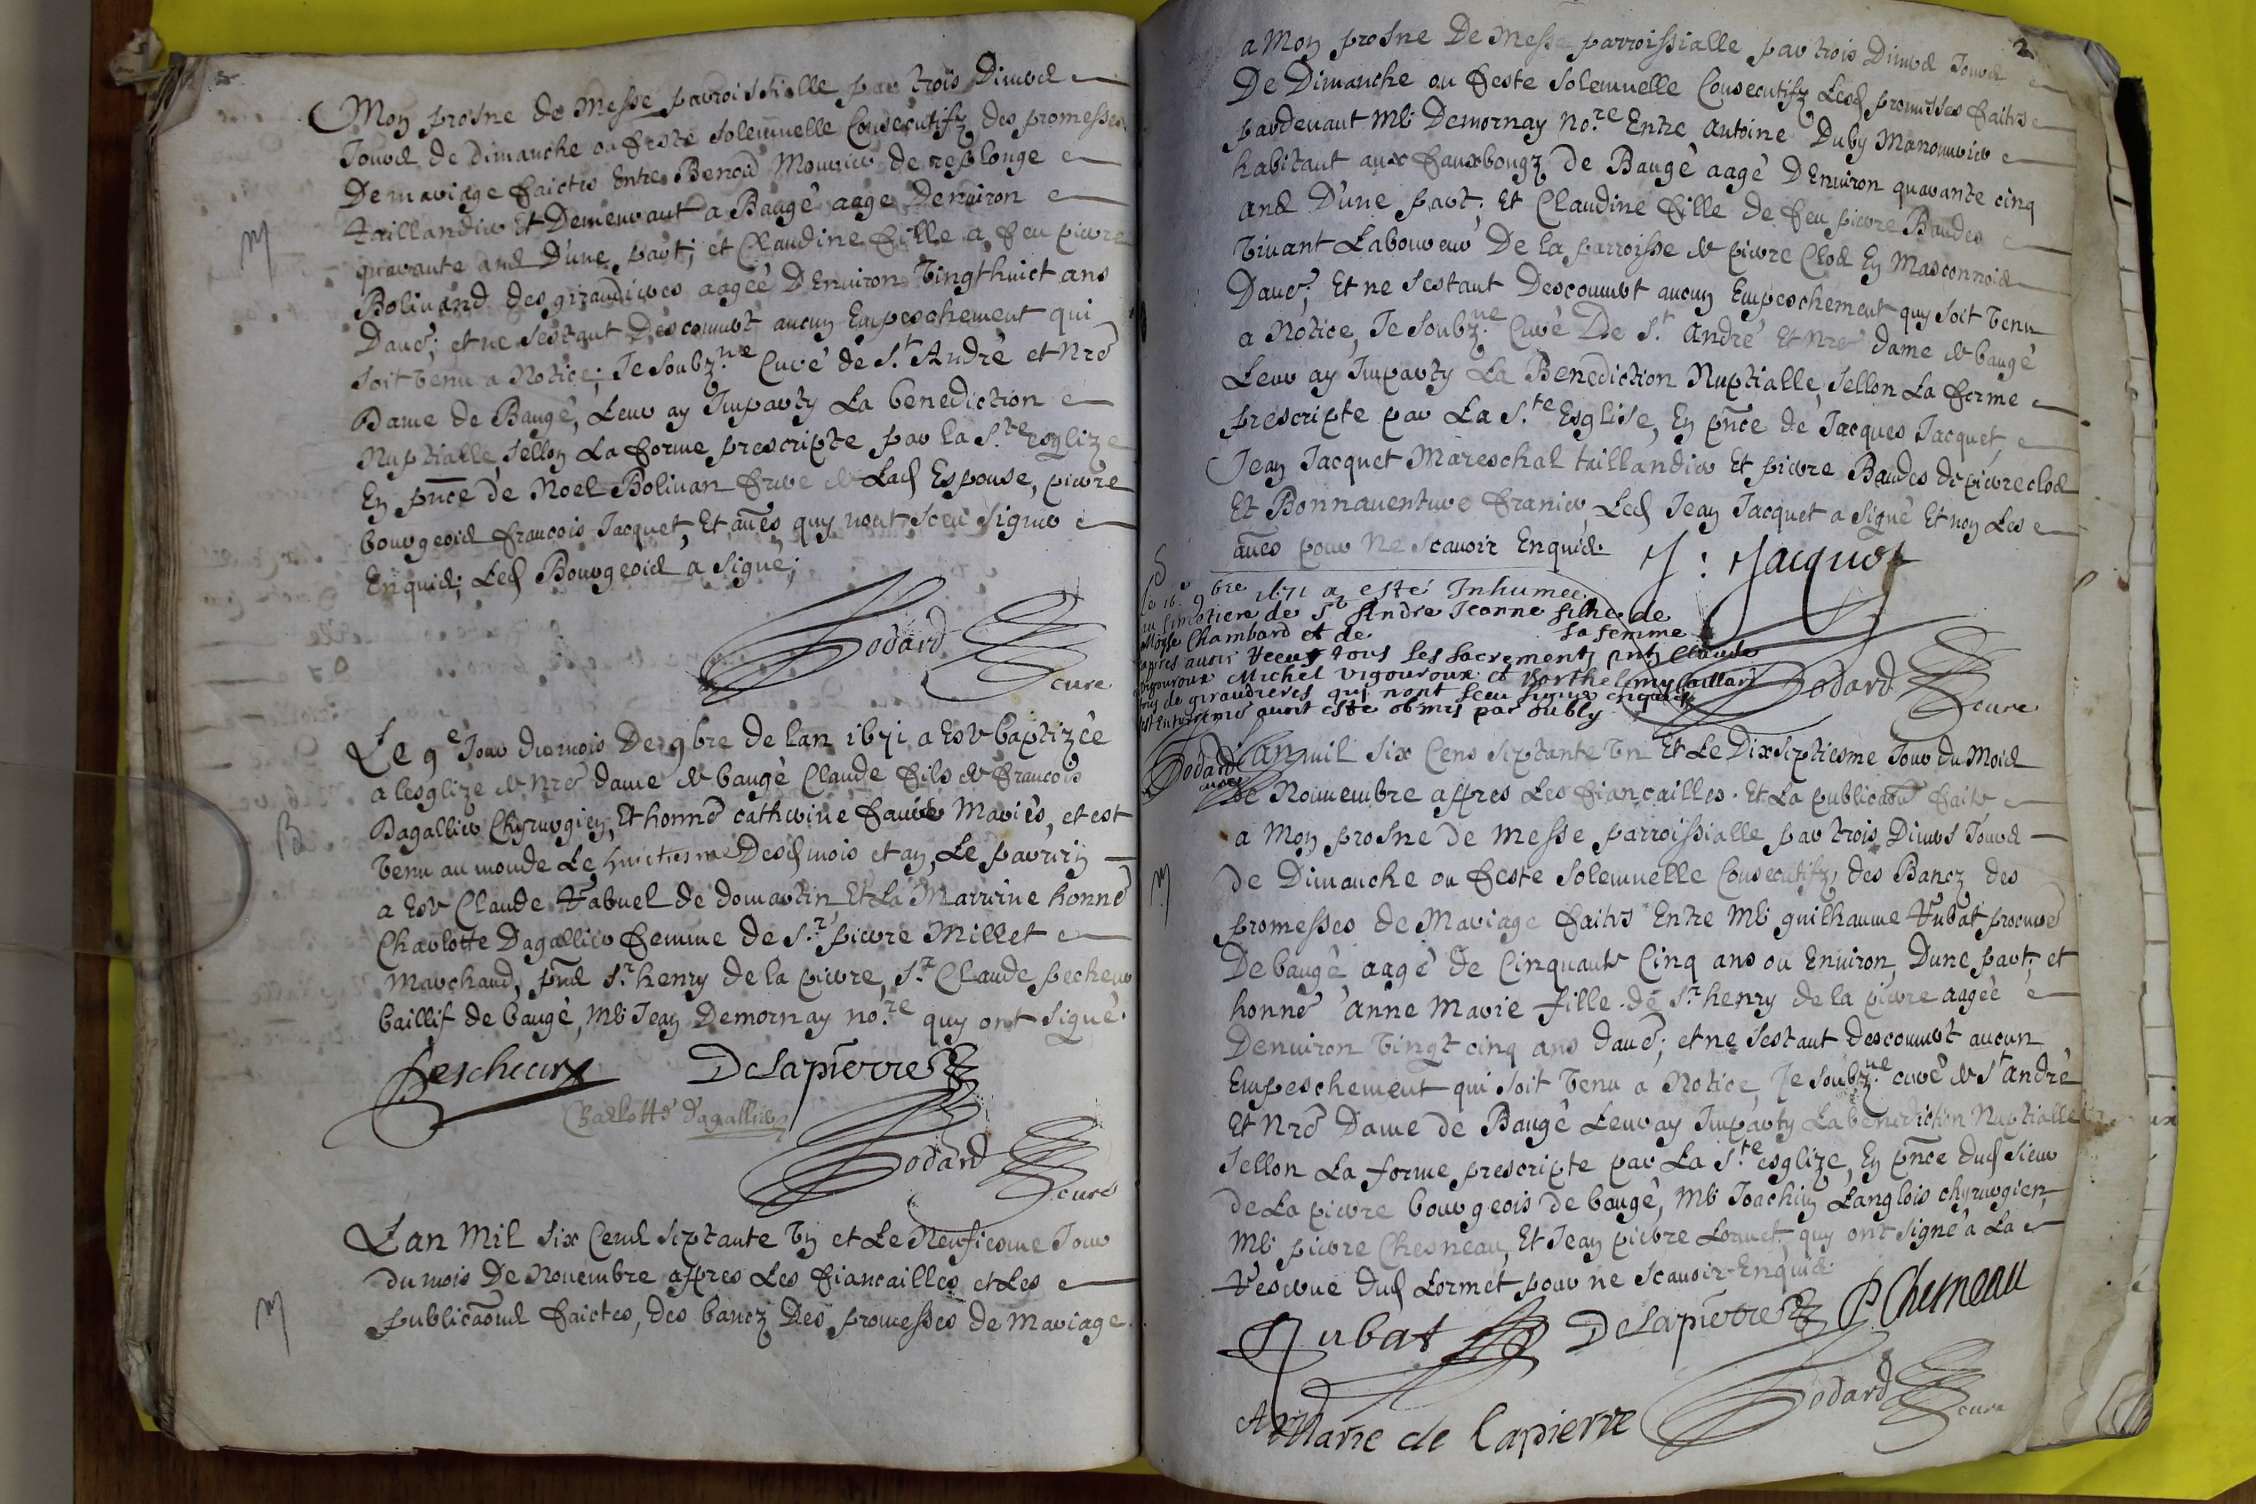 Mon prosne de Messe parroissialle par trois Divers
Jours de Dimanche ou feste solemnelle Consecutifz des promesses
De mariage faictes Entre Benoid Mounier de replonge
taillandier Et Demeurant a Baugé aagé Denviron
quarante ans D'une part; et Claudine fille a feu pierre
Bolivand des giraudieres aagée D'Environ Vingthuict ans
Dau.e; et ne s'estant descouvert aucun Empeschement qui
soit venu a Notice; Je Soubz.ne Curé de S.t André et Nr̃e
Dame de Baugé, Leur ay Imparty La benediction
Nuptialle, sellon La forme prescripte par la S.te esglize
En pñce de Noel Bolivan frere de Lad Espouse, pierre
bourgeois francois Jacquet, Et au͂es quy n'ont sceu signer
Enquis; Led Bourgeois a Signé;
Godard
cure
Le 9e Jour du mois De 9bre de lan 1671 a Este baptizée
a lesglize de Nr̃e dame de baugé Claude fils de francois
Dagallier Chyrurgien, Et honne͂ catherine favre Mariés, et est
venu au monde Le huictiesme Desd mois et an, Le parrin
a Este Claude Vabuel de domartin Et La Marrine honne͂
Charlotte Dagallier femme de S.r pierre Millet
Marchand, pñs S.r henry de la pierre, S.r Claude pecheur
baillif de baugé, M.e Jean Demornay no.re quy ont signé.
Pescheur Delapierre
Charlotte Dagallier
Godard
cure
Lan Mil Six Cens Septante Un et Le Neufiesme Jour
du mois De Novembre appres Les fiancailles et Les
publica͠ons faictes, des bancz Des promesses de Mariage
2
a Mon prosne De Messe parroissialle par trois Divers Jours
De Dimanche ou feste solemnelle Consecutifz Lesd promesses faittes
pardevant M.e Demornay no.re Entre Antoine Duby Manouvrier
habitant aux fauxbougz de Baugé aagé D'Environ quarante cinq
ans D'une part; Et Claudine fille de feu pierre Baudes
Vivant Laboureur De la parroisse de pierre Clos En Masconnois
Dau.e; Et ne s'estant Descouvert aucun Empeschement quy soit venu
a Notice, Je Soubz.ne Curé De S.t André Et Nr̃e dame de baugé
Leur ay Imparty La Benediction Nuptialle, Sellon La forme
prescripte par La S.te Esglise, En pñce de Jacques Jacquet,
Jean Jacquet Mareschal taillandier Et pierre Baudes de pierreclos
Et Bonnaventure franier Led Jean Jacquet a signé Et non Les
au͂es pour Ne scavoir Enquis.
J: Jacquet
Le 16.e 9bre 1671 a esté Inhumee
au simetiere de St Andre Jeanne fille de
Moyse Chambard et de sa femme
apres avoir receu tous les sacrements pnts Claude
Vigouroux Michel Vigouroux et Barthelemy Caillars
tous de giraudieres qui nont sceu signer enquis
cest Enterremt avoit este obmis par oubly
Godard
cure
Godard
cure
Lan mil six Cens Septante Un Et Le Dixseptiesme Jour du Mois
de Nouvembre appres Les fiancailles. Et La publica͠on faitte
a Mon prosne de Messe parroissialle par trois Divers Jours
de Dimanche ou feste solemnelle Consecutifz, des Bancz des
promesses de Mariage faittes Entre M.e guilhaume Vubat procure͂
De baugé aagé de Cinquante Cinq ans ou Environ, Dune part; et
honne͂ Anne Marie fille de S.r henry de la pierre aagée
Denviron Vingt cinq ans dau.e; et ne sestant descouvert aucun
Empeschement qui soit venu a Notice, Je Soubz.ne curé de S.t André
Et Nr̃e Dame de Baugé Leur ay Imparty La benediction Nuptialle
Sellon La forme prescripte par La S.te esglize, En pñce dud Sieur
de La pierre bourgeois de baugé, M.e Joachin Langlois chyrurgien,
M.e pierre Chesneau, Et Jean pierre Lormet, quy ont signé a La
Reserve dud Lormet pour ne scavoir Enquis
Rubat Delapierre P. Chesneau
A Marie de Lapierre
Godard
cure